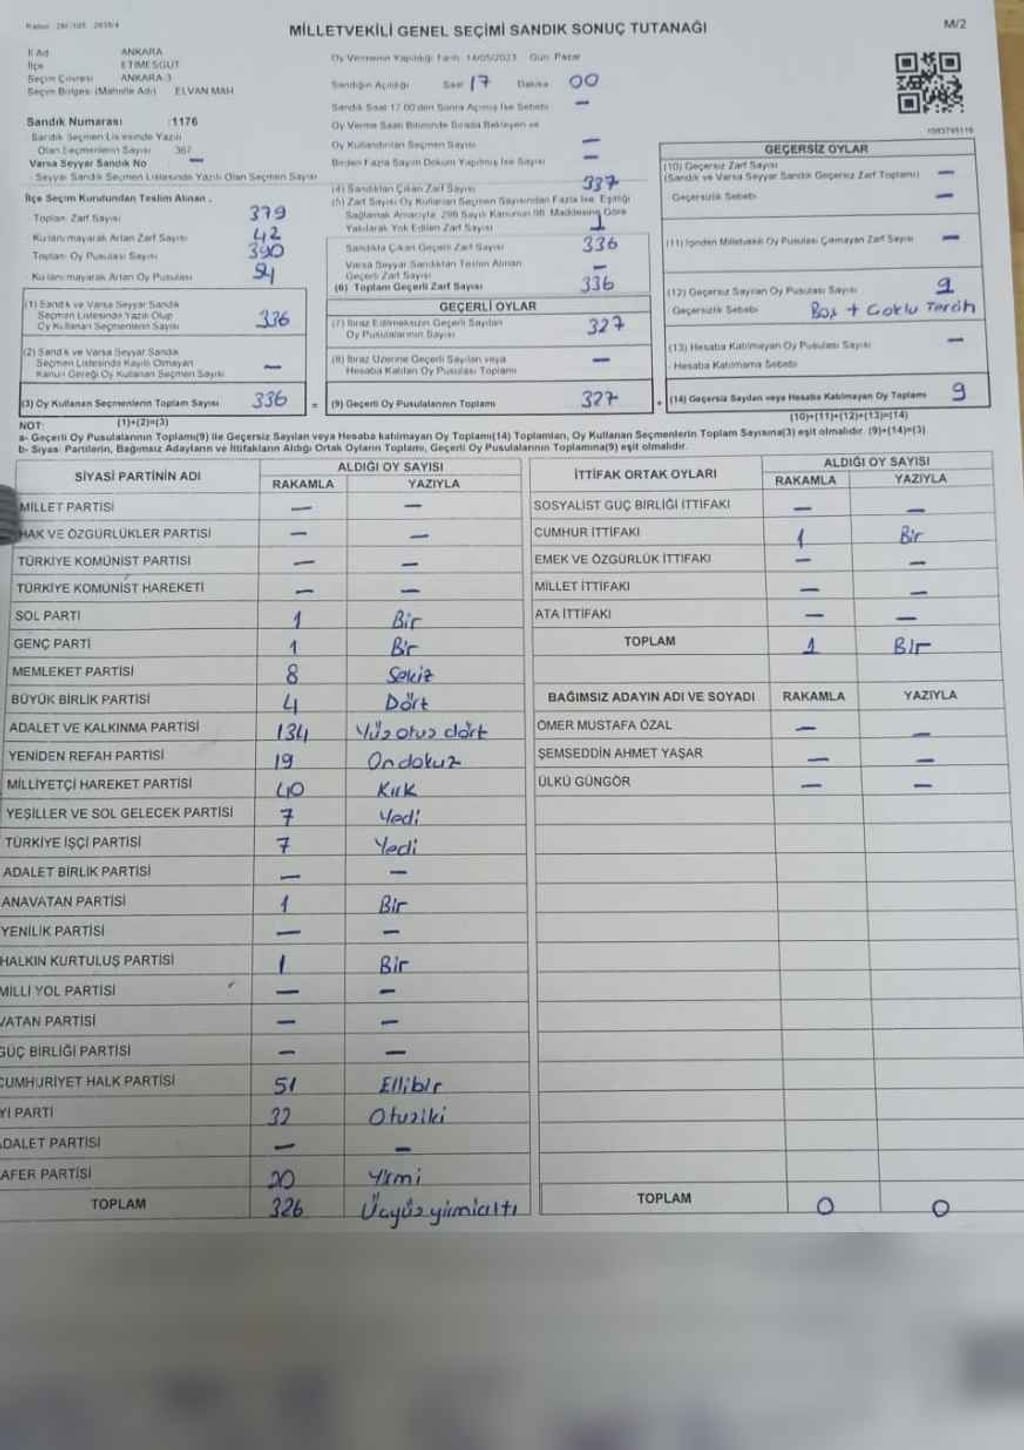 MİLLETVEKİLİ GENEL SEÇİMİ SANDIK SONUÇ TUTANAĞI
M/2
İl Adı ANKARA
İlçe ETİMESGUT
Seçim Çevresi ANKARA-3
Seçim Bölgesi (Mahalle Adı) ELVAN MAH
Sandık Numarası :1176
Sandık Seçmen Listesinde Yazılı
Olan Seçmenlerin Sayısı 367
Varsa Seyyar Sandık No —
Seyyar Sandık Seçmen Listesinde Yazılı Olan Seçmen Sayısı
İlçe Seçim Kurulundan Teslim Alınan
Toplam Zarf Sayısı 379
Kullanılmayarak Artan Zarf Sayısı 42
Toplam Oy Pusulası Sayısı 390
Kullanılmayarak Artan Oy Pusulası
(1) Sandık ve Varsa Seyyar Sandık
Seçmen Listesinde Yazılı Olup
Oy Kullanan Seçmenlerin Sayısı 336
(2) Sandık ve Varsa Seyyar Sandık
Seçmen Listesinde Kayıtlı Olmayan
Kanun Gereği Oy Kullanan Seçmen Sayısı —
(3) Oy Kullanan Seçmenlerin Toplam Sayısı 336
(1)+(2)=(3)
Oy Vermenin Yapıldığı Tarih: 14/05/2023 Gün: Pazar
Sandığın Açıldığı Saat 17 Dakika 00
Sandık Saat 17.00'den Sonra Açılmış İse Sebebi —
Oy Verme Saati Bitiminde Sırada Bekleyen ve
Oy Kullandırılan Seçmen Sayısı —
Birden Fazla Sayım Döküm Yapılmış İse Sayısı —
(4) Sandıktan Çıkan Zarf Sayısı 337
(5) Zarf Sayısı Oy Kullanan Seçmen Sayısından Fazla İse, Eşitliği
Sağlamak Amacıyla, 298 Sayılı Kanunun 98. Maddesine Göre
Yakılarak Yok Edilen Zarf Sayısı 1
Sandıkta Çıkan Geçerli Zarf Sayısı 336
Varsa Seyyar Sandıktan Teslim Alınan
Geçerli Zarf Sayısı —
(6) Toplam Geçerli Zarf Sayısı 336
GEÇERLİ OYLAR
(7) İtiraz Edilmeksizin Geçerli Sayılan
Oy Pusulalarının Sayısı 327
(8) İtiraz Üzerine Geçerli Sayılan veya
Hesaba Katılan Oy Pusulası Toplamı —
= (9) Geçerli Oy Pusulalarının Toplamı 327
GEÇERSİZ OYLAR
(10) Geçersiz Zarf Sayısı
(Sandık ve Varsa Seyyar Sandık Geçersiz Zarf Toplamı) —
Geçersizlik Sebebi —
(11) İçinden Milletvekili Oy Pusulası Çıkmayan Zarf Sayısı —
(12) Geçersiz Sayılan Oy Pusulası Sayısı 9
Geçersizlik Sebebi Boş + Çoklu Tercih
(13) Hesaba Katılmayan Oy Pusulası Sayısı —
Hesaba Katılmama Sebebi
+ (14) Geçersiz Sayılan veya Hesaba Katılmayan Oy Toplamı 9
(10)+(11)+(12)+(13)=(14)
NOT:
a- Geçerli Oy Pusulalarının Toplamı(9) ile Geçersiz Sayılan veya Hesaba katılmayan Oy Toplamı(14) Toplamları, Oy Kullanan Seçmenlerin Toplam Sayısına(3) eşit olmalıdır. (9)+(14)=(3)
b- Siyasi Partilerin, Bağımsız Adayların ve İttifakların Aldığı Ortak Oyların Toplamı, Geçerli Oy Pusulalarının Toplamına(9) eşit olmalıdır.
SİYASİ PARTİNİN ADI ALDIĞI OY SAYISI
RAKAMLA YAZIYLA
MİLLET PARTİSİ — —
HAK VE ÖZGÜRLÜKLER PARTİSİ — —
TÜRKİYE KOMÜNİST PARTİSİ — —
TÜRKİYE KOMÜNİST HAREKETİ — —
SOL PARTİ 1 Bir
GENÇ PARTİ 1 Bir
MEMLEKET PARTİSİ 8 Sekiz
BÜYÜK BİRLİK PARTİSİ 4 Dört
ADALET VE KALKINMA PARTİSİ 134 Yüz otuz dört
YENİDEN REFAH PARTİSİ 19 Ondokuz
MİLLİYETÇİ HAREKET PARTİSİ 40 Kırk
YEŞİLLER VE SOL GELECEK PARTİSİ 7 Yedi
TÜRKİYE İŞÇİ PARTİSİ 7 Yedi
ADALET BİRLİK PARTİSİ — —
ANAVATAN PARTİSİ 1 Bir
YENİLİK PARTİSİ — —
HALKIN KURTULUŞ PARTİSİ 1 Bir
MİLLİ YOL PARTİSİ — —
VATAN PARTİSİ — —
GÜÇ BİRLİĞİ PARTİSİ — —
CUMHURİYET HALK PARTİSİ 51 Ellibir
Yİ PARTİ 32 Otuziki
ADALET PARTİSİ — —
AFER PARTİSİ 20 Yirmi
TOPLAM 326 Üçyüzyirmialtı
İTTİFAK ORTAK OYLARI ALDIĞI OY SAYISI
RAKAMLA YAZIYLA
SOSYALİST GÜÇ BİRLİĞİ İTTİFAKI — —
CUMHUR İTTİFAKI 1 Bir
EMEK VE ÖZGÜRLÜK İTTİFAKI — —
MİLLET İTTİFAKI — —
ATA İTTİFAKI — —
TOPLAM 1 Bir
BAĞIMSIZ ADAYIN ADI VE SOYADI RAKAMLA YAZIYLA
ÖMER MUSTAFA ÖZAL — —
ŞEMSEDDİN AHMET YAŞAR — —
ÜLKÜ GÜNGÖR — —
TOPLAM 0 0